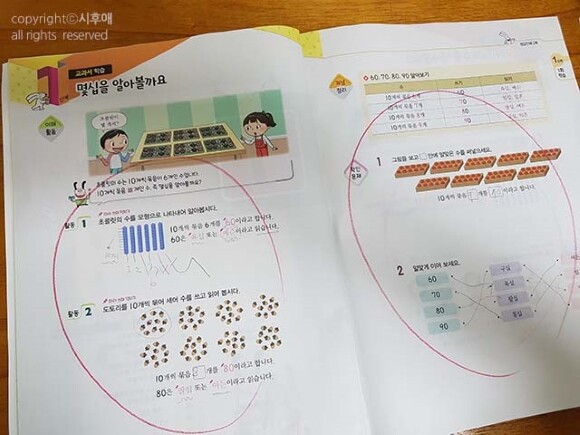 copyrightⓒ시후애
all rights reserved
1
교과서 학습
몇십을 알아볼까요
이해
활동
초콜릿이
몇 개지?
초콜릿의 수는 10개씩 묶음이 6개인 수입니다.
활동 1
초콜릿의 수를 모형으로 나타내어 알아봅시다.
10개씩 묶음 6개를 60이라고 합니다.
60은 육십 또는 예순이라고 읽습니다.
활동 2
도토리를 10개씩 묶어 세어 수를 쓰고 읽어 봅시다.
10개씩 묶음 8개를 80이라고 합니다.
80은 팔십 또는 여든이라고 읽습니다.
개념
정리
60, 70, 80, 90 알아보기
수 쓰기 읽기
10개씩 묶음 6개 60 육십, 예순
10개씩 묶음 7개 70
10개씩 묶음 8개 80
10개씩 묶음 9개 90
확인
문제
1 그림을 보고 안에 알맞은 수를 써넣으세요.
10개씩 묶음 개를 이라고 합니다.
2 알맞게 이어 보세요.
60 구십
70 육십
80 팔십
90 칠십